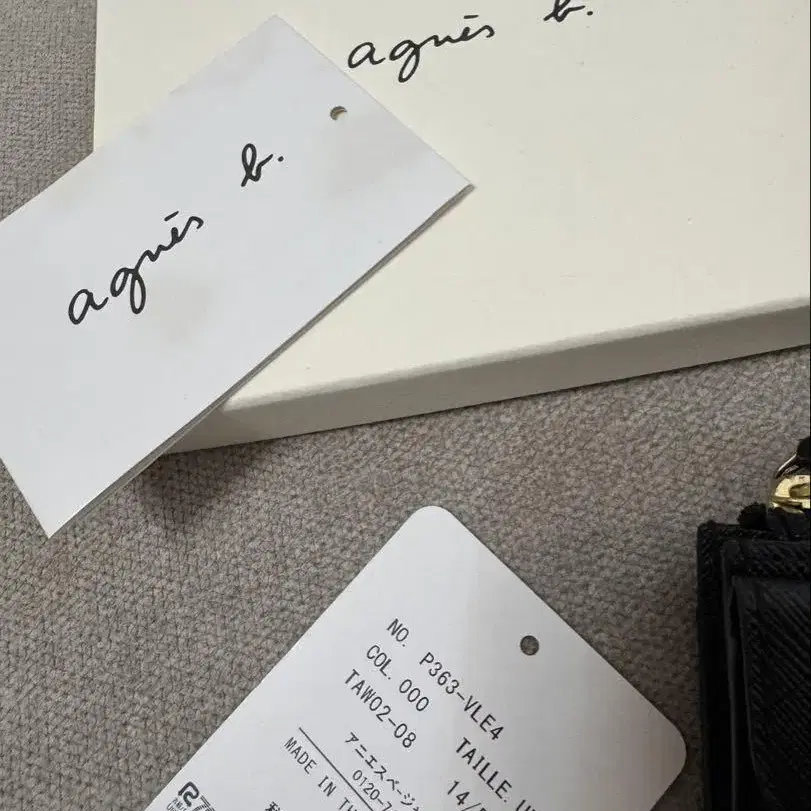 agnès b.
agnès b.
NO. P363-VLE4
COL. 000 TAILLE.
TAW02-08
アニエスベージャ
0120-7
MADE IN